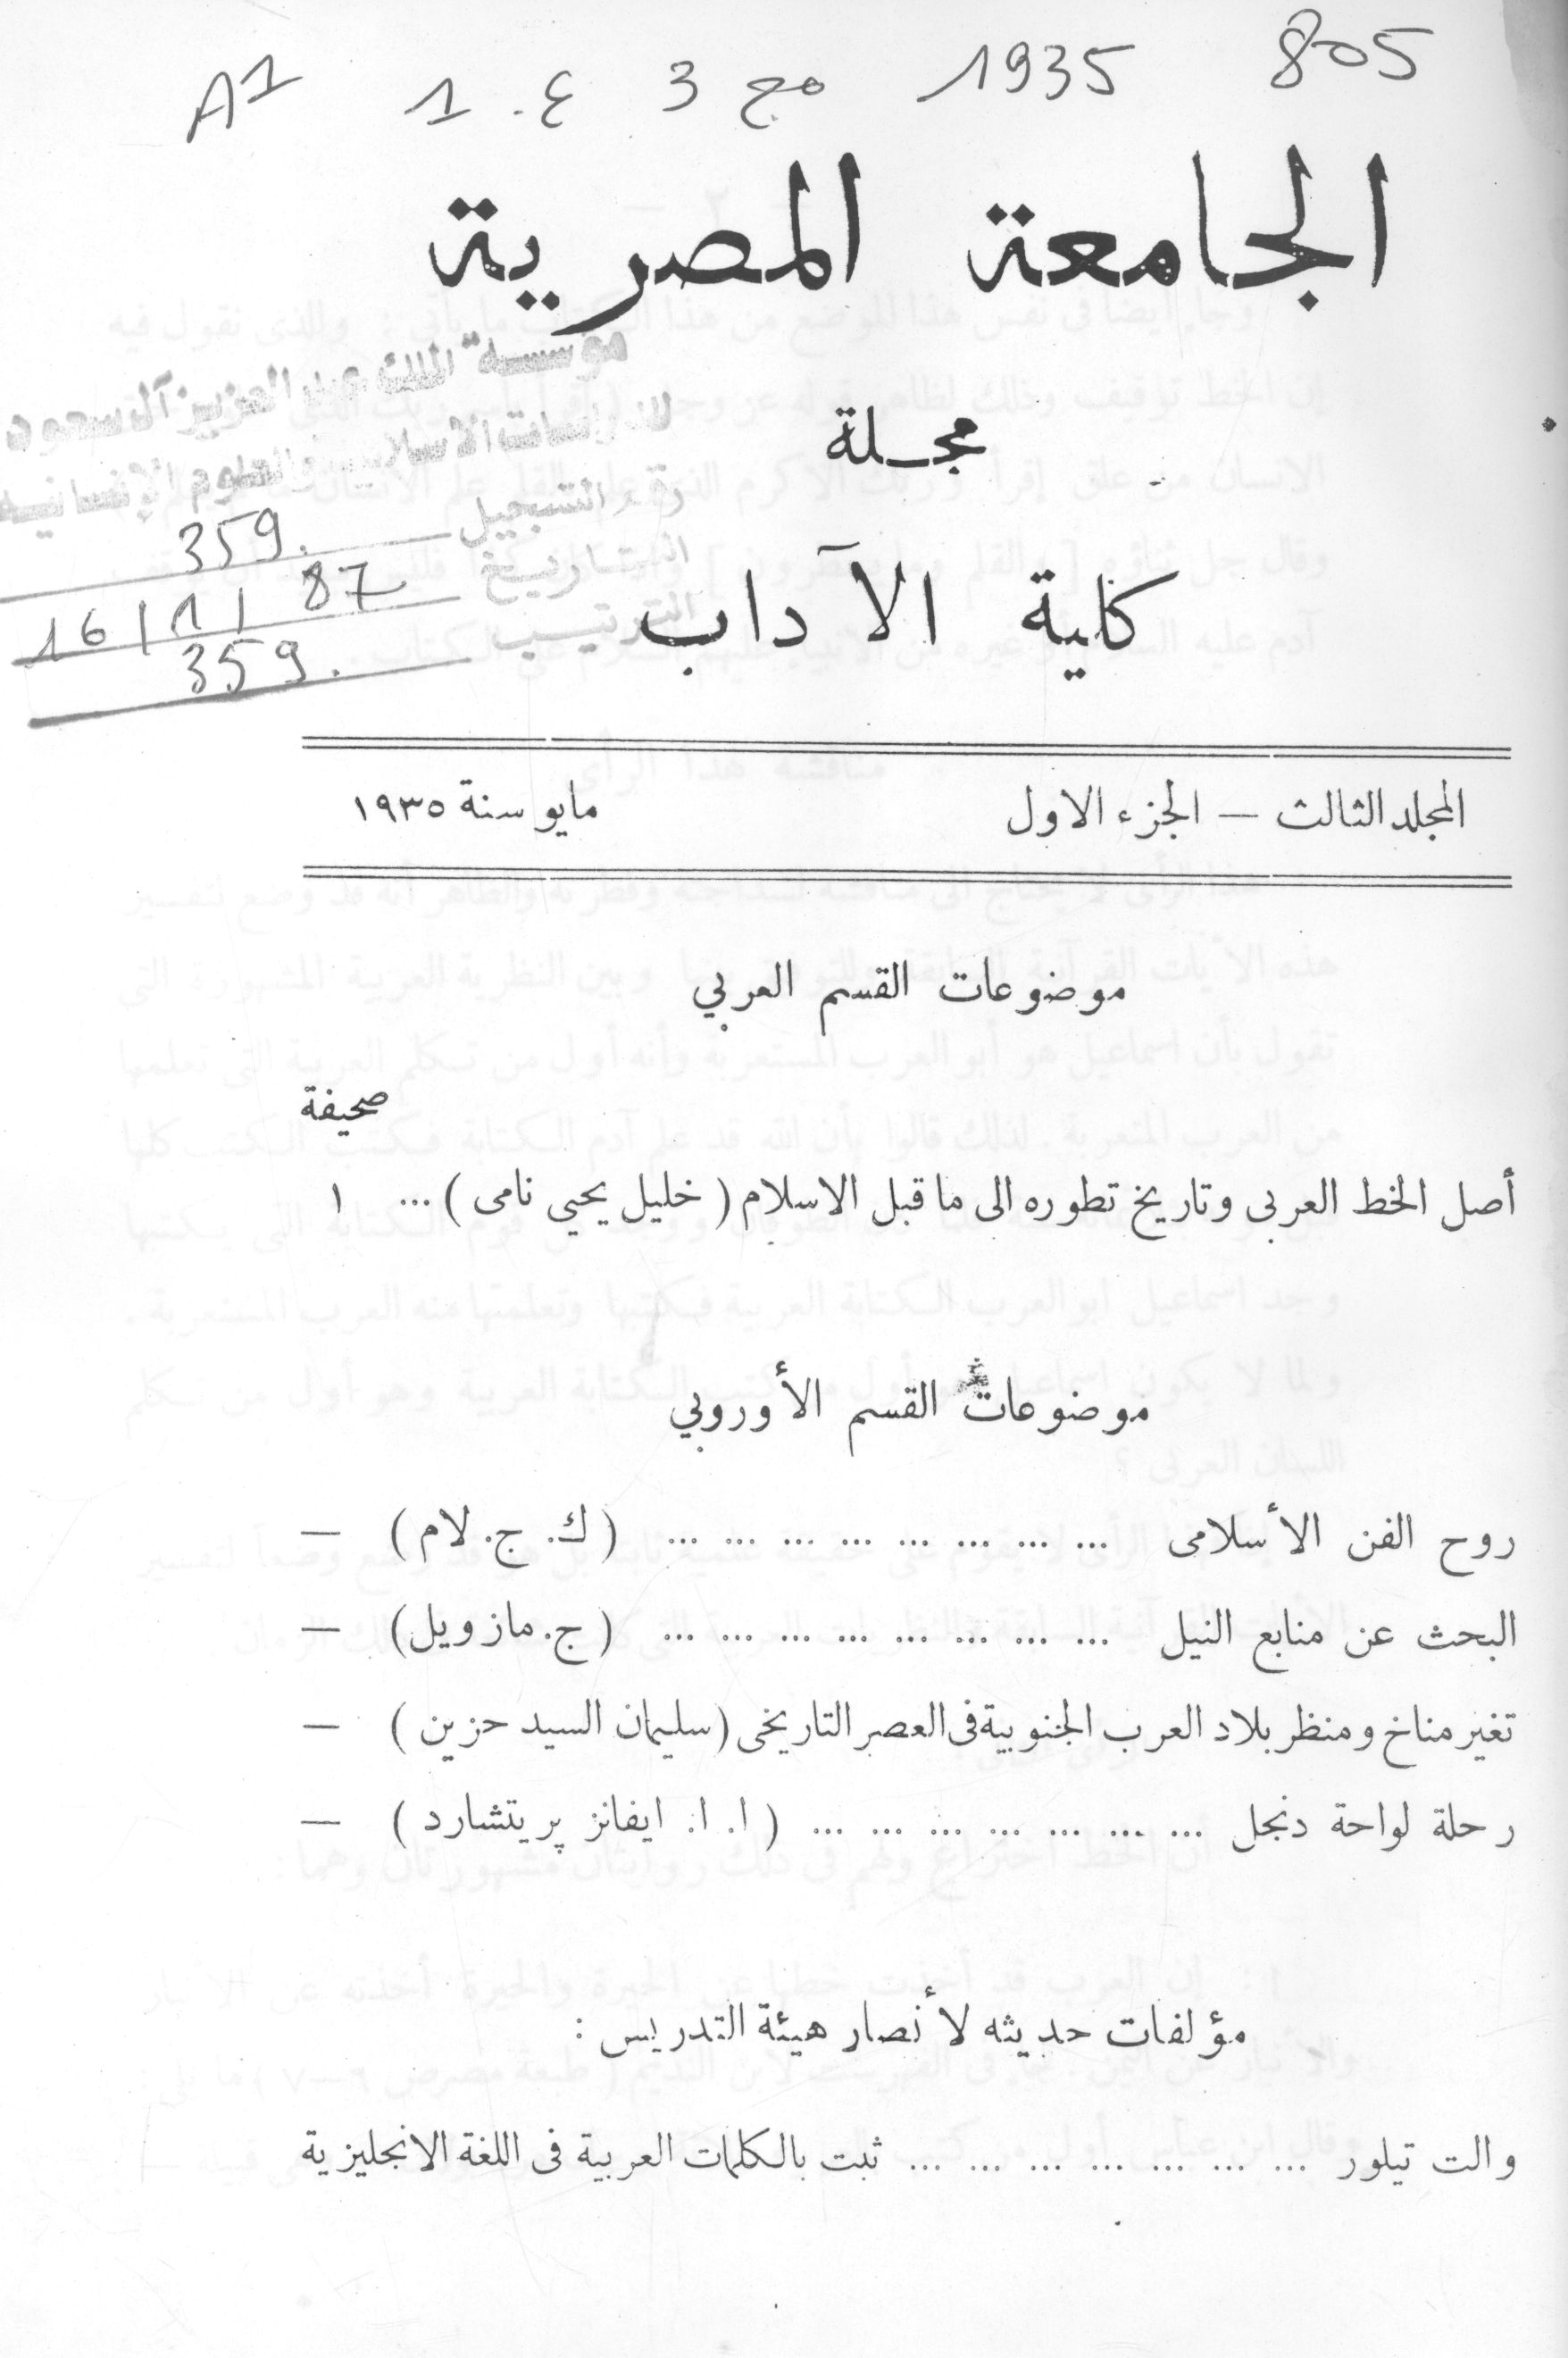 805 1935 مج 3 ع. 1 A1
الجامعة المصرية
مؤسسة الملك عبد العزيز آل سعود
للدراسات الاسلامية والعلوم الإنسانية
رقم التسجيل 359.
التاريخ 16/1/87
الترتيب 359.
مجلة
كلية الآداب
المجلد الثالث — الجزء الاول مايو سنة ١٩٣٥
موضوعات القسم العربي
صحيفة
أصل الخط العربى وتاريخ تطوره الى ما قبل الاسلام ( خليل يحيى نامى ) ... ١
موضوعات القسم الأوروبي
روح الفن الأسلامى ... ... ... ... ... ... ... ... ( ك. ج. لام ) —
البحث عن منابع النيل ... ... ... ... ... ... ... ... ( ج. مازويل ) —
تغير مناخ ومنظر بلاد العرب الجنوبية فى العصر التاريخى ( سليمان السيد حزين ) —
رحلة لواحة دنجل ... ... ... ... ... ... ... ( ا. ا. ايفانز پريتشارد ) —
مؤلفات حديثه لأنصار هيئة التدريس :
والت تيلور ... ... ... ... ... ... ... ثبت بالكلمات العربية فى اللغة الانجليزية